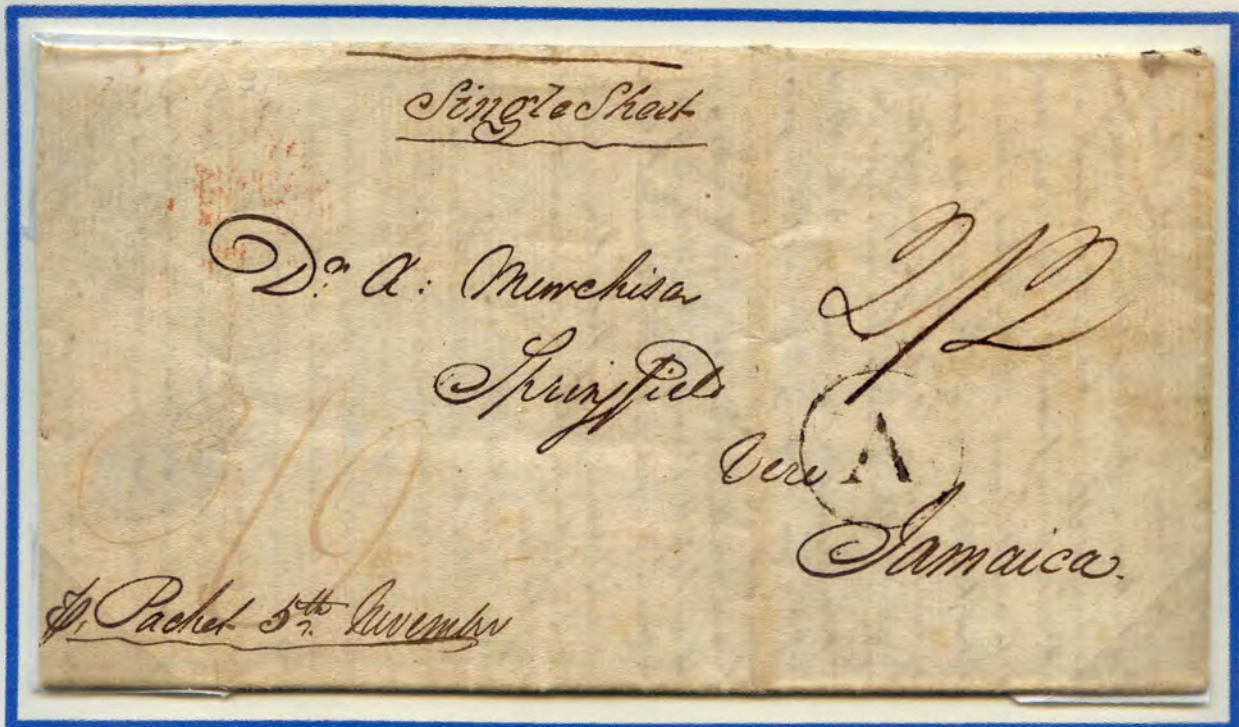 Single Sheet
Dr. A: Murchison
2/2
Springfield
Vere
A
Jamaica.
℘. Packet 5th. November